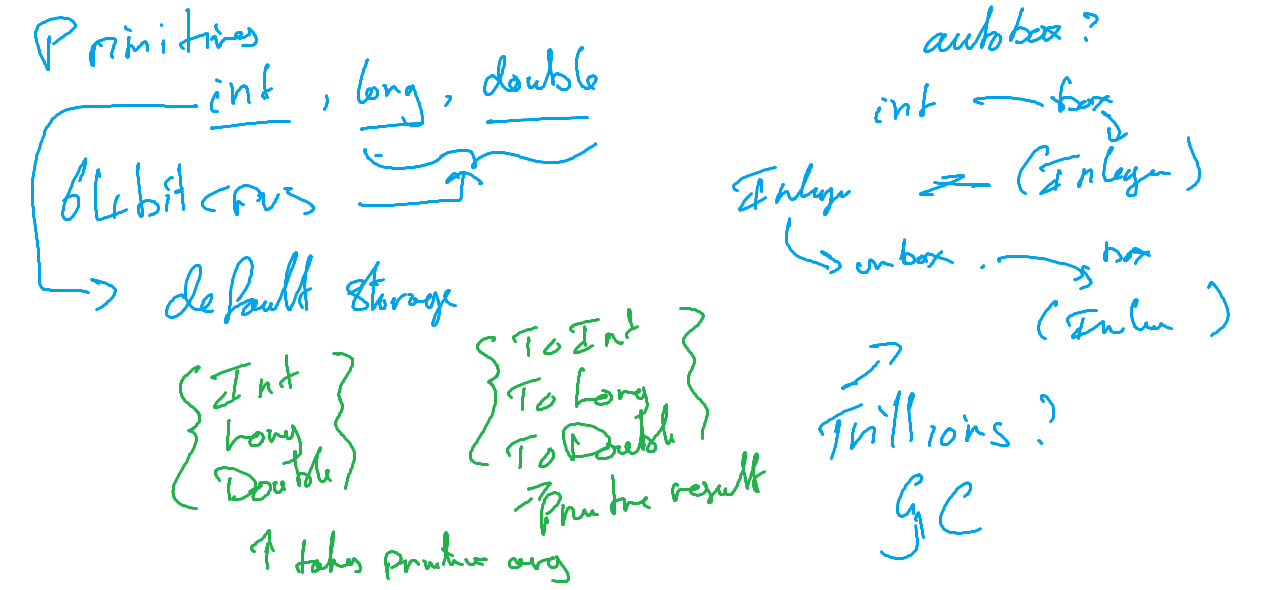 Primitives
int , long , double
64 bit CPUs
default storage
{ Int
Long
Double }
↑ takes primitive arg
{ To Int
To Long
To Double }
→ Primitive result
autobox?
int box
(Integer)
Integer
unbox . box
Trillions?
GC